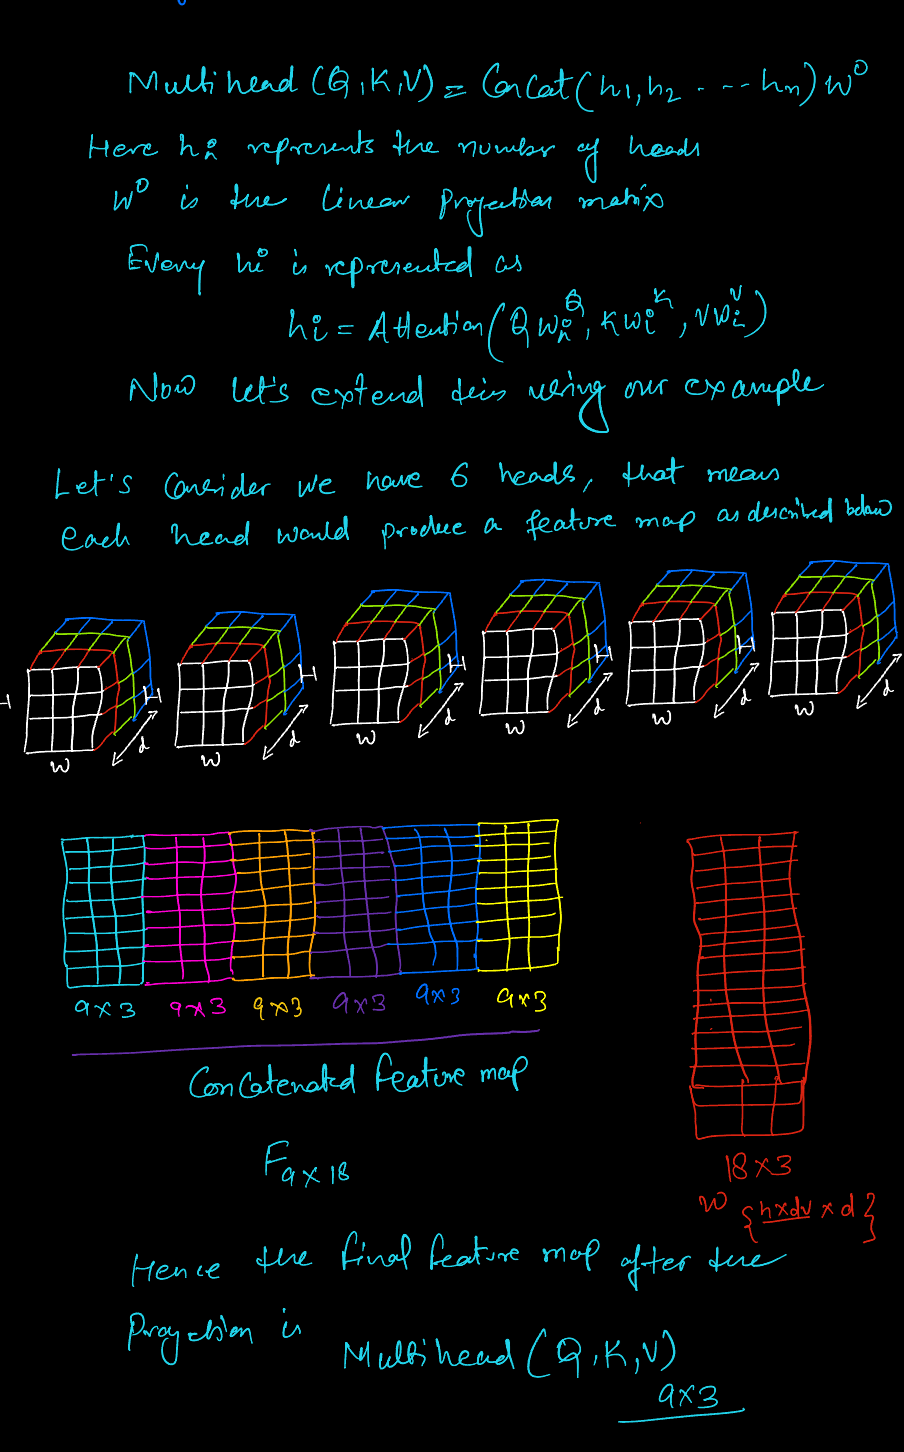 Multihead (Q,K,V) = Concat(h1, h2 . . -- hn) W^O
Here hi represents the number of heads
W^O is the linear projection matrix
Every hi is represented as
hi = Attention(QWi^Q, KWi^K, VWi^V)
Now let's extend this using our example
Let's Consider we have 6 heads, that means
each head would produce a feature map as described below
H H H H H H
W d W d W d W d W d W d
9x3 9x3 9x3 9x3 9x3 9x3
Concatenated feature map
F9x18
18x3
W {hxdv x d}
Hence the final feature map after the
Projection is
Multihead (Q,K,V)
9x3